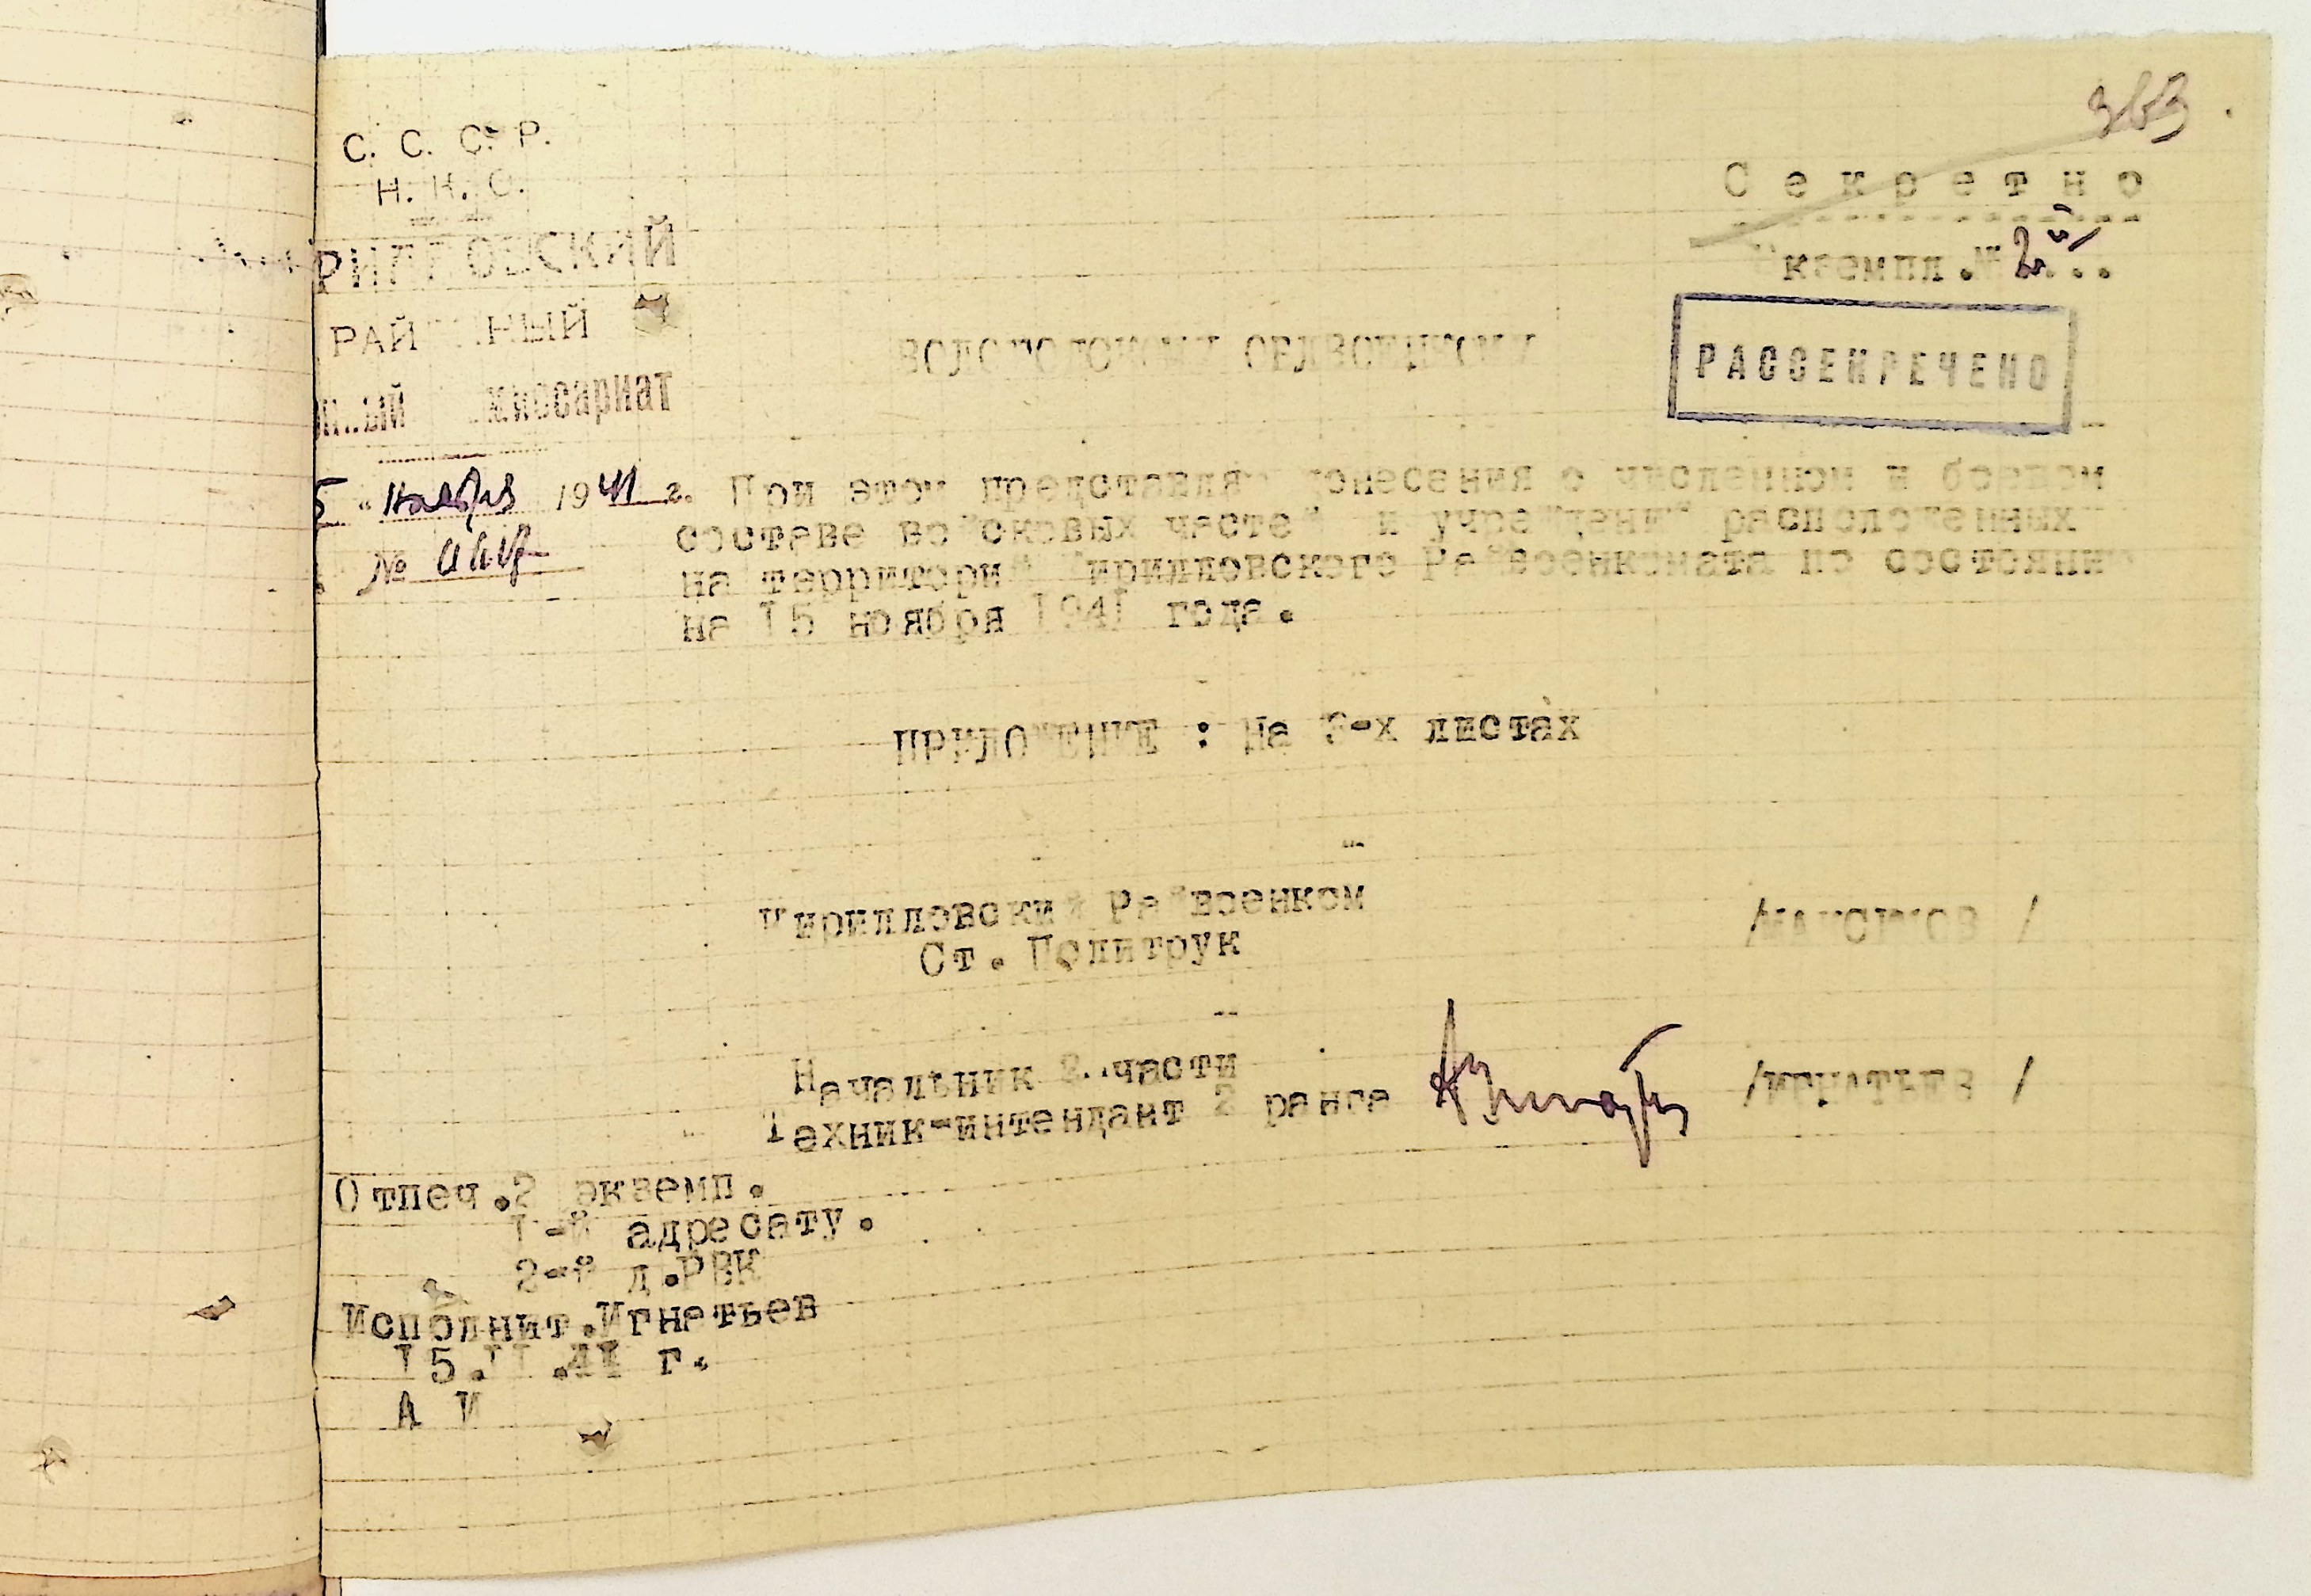 363.
С е к р е т н о
Экземпл.№ 2
С. С. С. Р.
Н. К. О.
КИРИЛЛОВСКИЙ
РАЙОННЫЙ
ВОЕННЫЙ комиссариат
РАССЕКРЕЧЕНО
ВОЛОГОДСКИЙ ОБЛВОЕНКОМАТ
15 " ноября 1941 г.
№
При этом представляю донесения о численном и боевом
составе войсковых частей и учреждений расположенных
на территории Кирилловского Райвоенкомата по состоянию
на I5 ноября I94I года.
ПРИЛОЖЕНИЕ : На 3-х листах
Кирилловский Райвоенком
Ст. Политрук
/МАКСИМОВ /
Начальник 2 части
Техник-интендант 2 ранга
/ИГНАТЬЕВ /
Отпеч.2 экземп.
I-й адресату.
2-й д.РВК
Исполнит.Игнатьев
I5.II.4I г.
А И